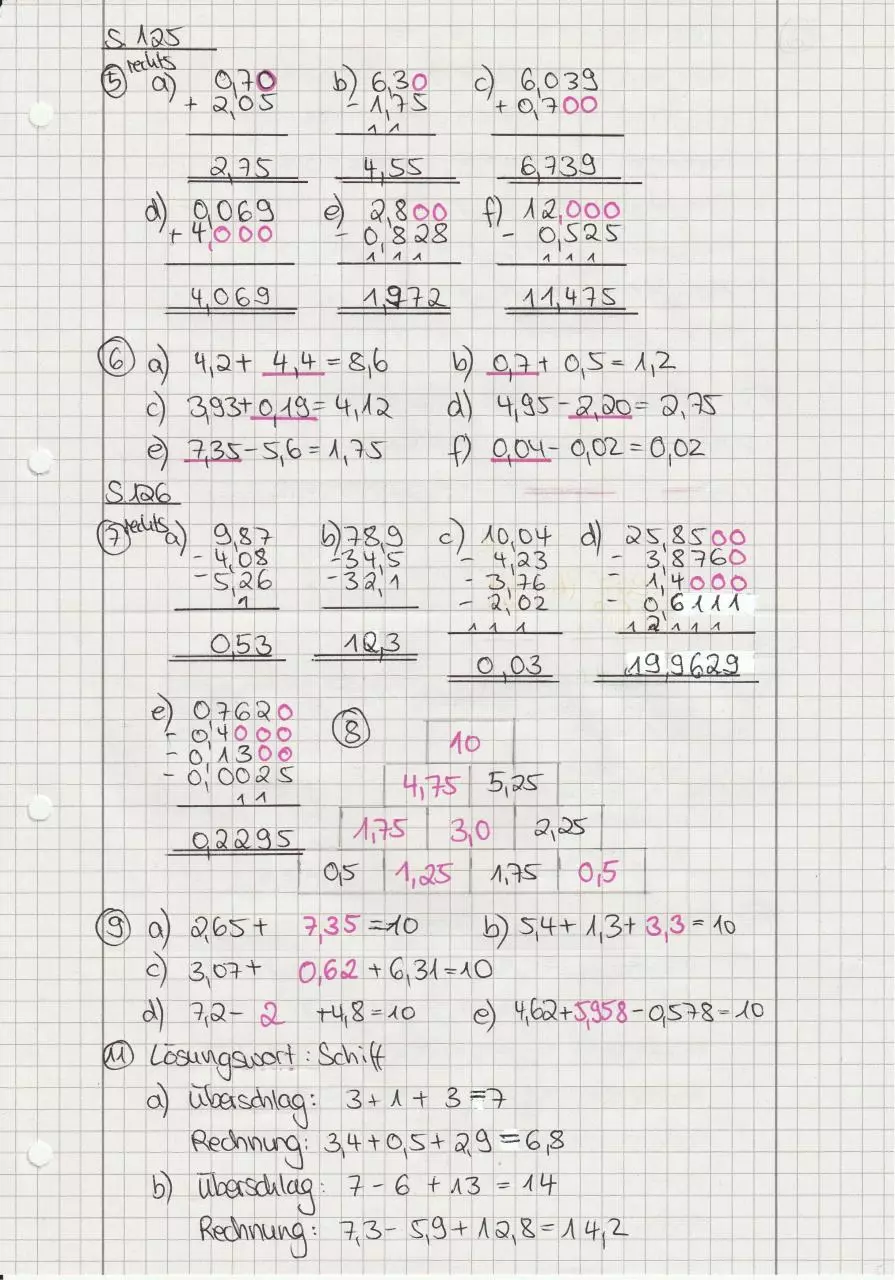 S. 125
rechts
5 a) 0,70 b) 6,30 c) 6,039
+ 2,05 - 1,75 + 0,700
1 1
2,75 4,55 6,739
d) 0,069 e) 2,800 f) 12,000
+ 4,000 - 0,828 - 0,525
1 1 1 1 1 1
4,069 1,972 11,475
6 a) 4,2 + 4,4 = 8,6 b) 0,7 + 0,5 = 1,2
c) 3,93 + 0,19 = 4,12 d) 4,95 - 2,20 = 2,75
e) 7,35 - 5,6 = 1,75 f) 0,04 - 0,02 = 0,02
S. 126
7 rechts a) 9,87 b) 78,9 c) 10,04 d) 25,8500
- 4,08 - 34,5 - 4,23 - 3,8760
- 5,26 - 32,1 - 3,76 - 1,4000
1 - 2,02 - 0,6111
1 1 1 1 2 1 1 1
0,53 12,3 0,03 19,9629
e) 0,7620 8
- 0,4000 10
- 0,1300
- 0,0025 4,75 5,25
1 1
0,2295 1,75 3,0 2,25
0,5 1,25 1,75 0,5
9 a) 2,65 + 7,35 = 10 b) 5,4 + 1,3 + 3,3 = 10
c) 3,07 + 0,62 + 6,31 = 10
d) 7,2 - 2 + 4,8 = 10 e) 4,62 + 5,958 - 0,578 = 10
11 Lösungswort: Schiff
a) Überschlag: 3 + 1 + 3 = 7
Rechnung: 3,4 + 0,5 + 2,9 = 6,8
b) Überschlag: 7 - 6 + 13 = 14
Rechnung: 7,3 - 5,9 + 12,8 = 14,2